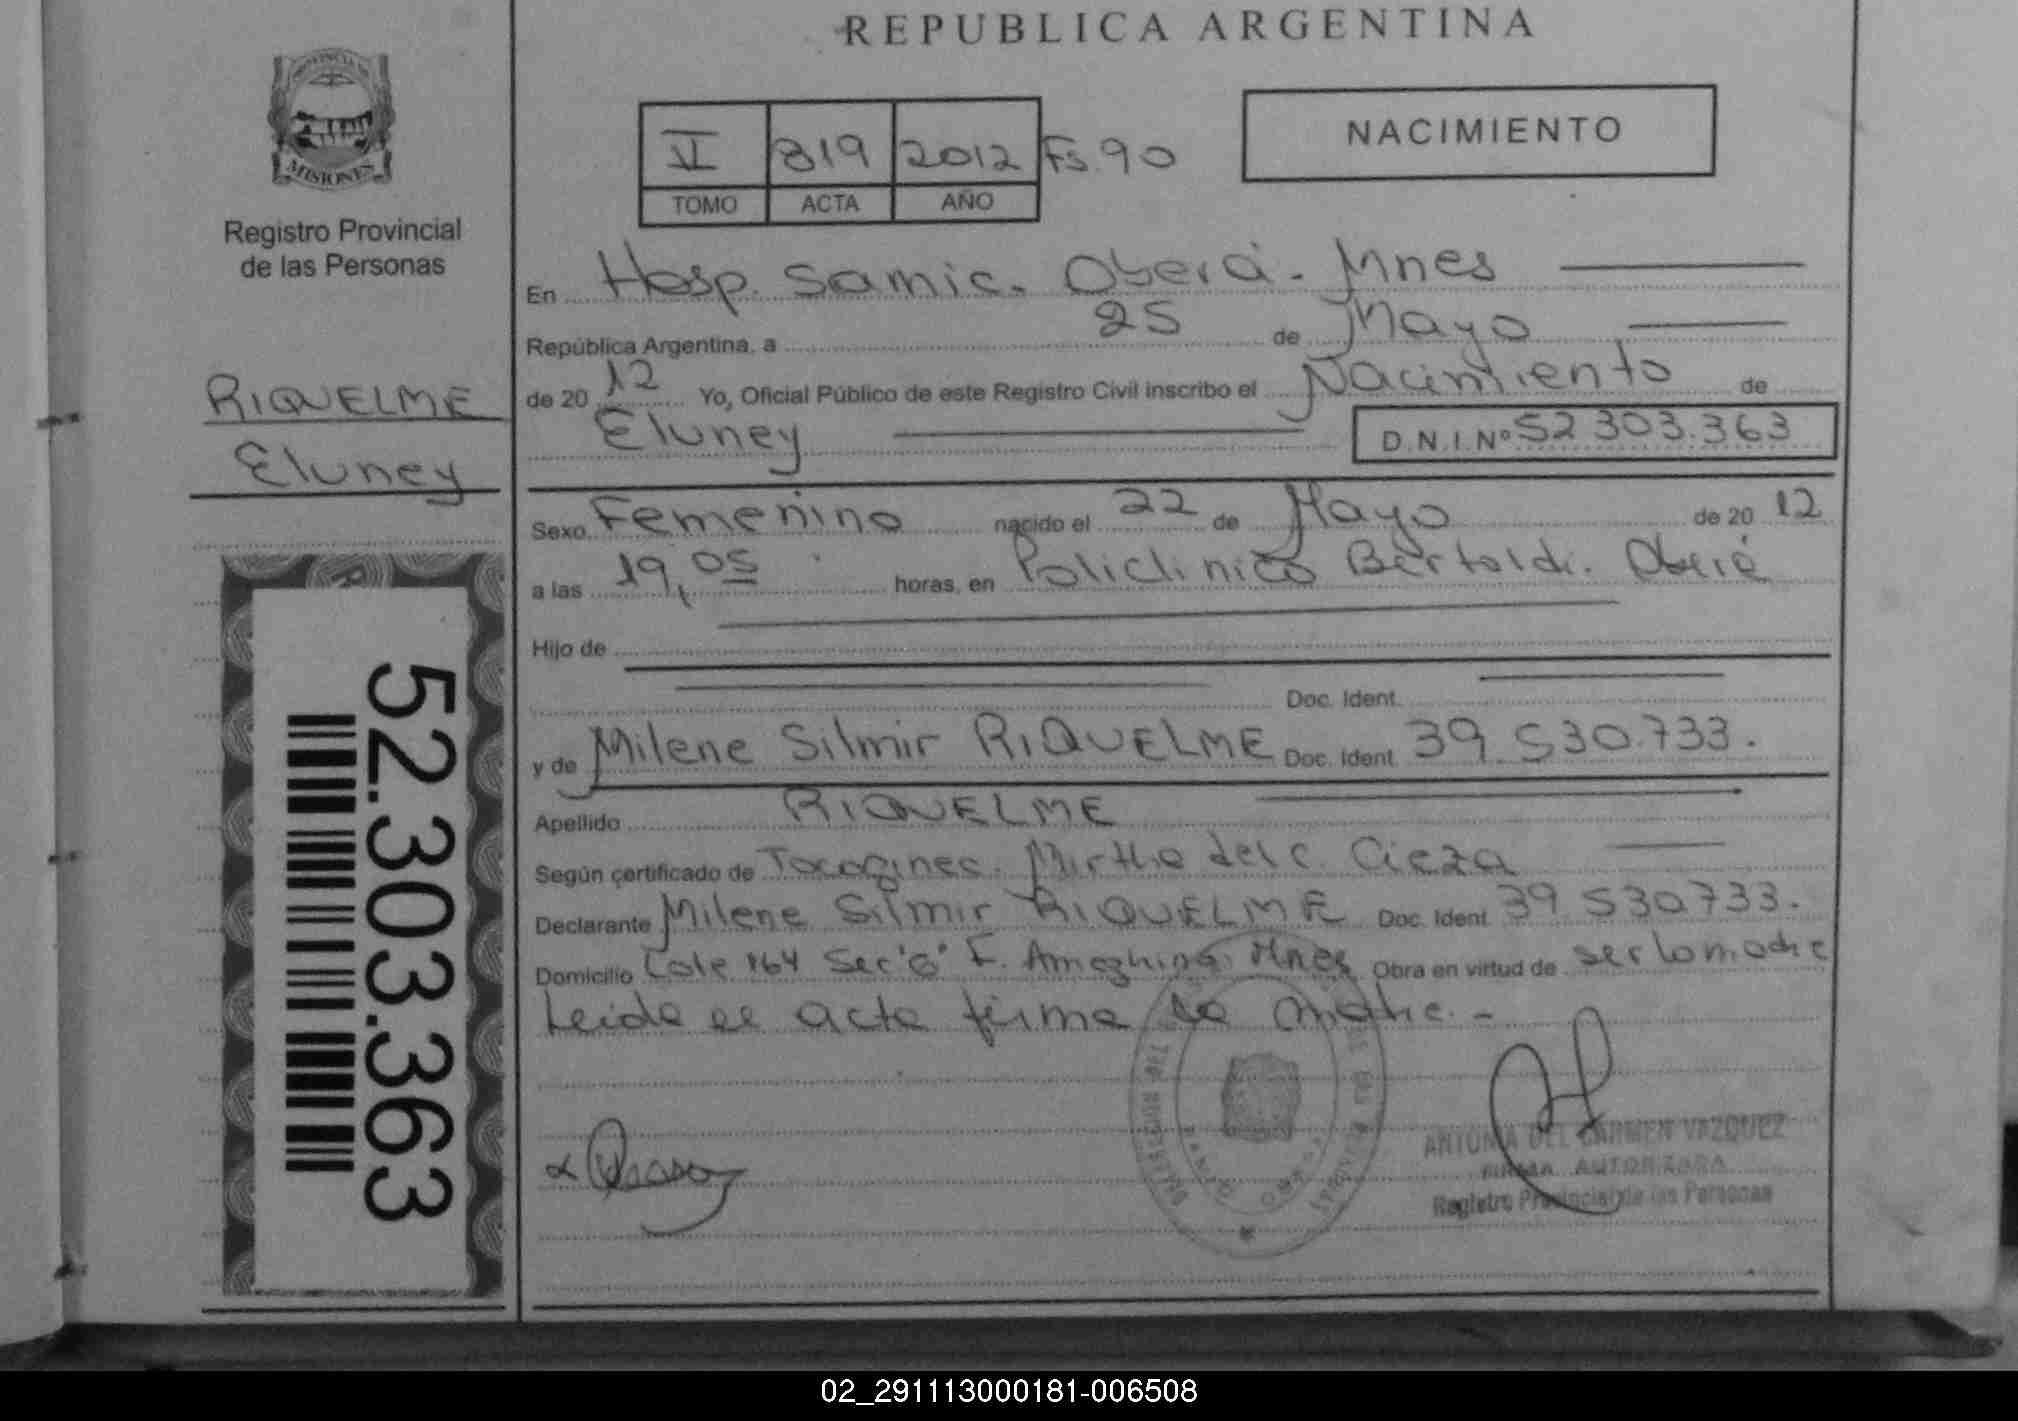 REPUBLICA ARGENTINA
PROVINCIA DE
MISIONES
Registro Provincial
de las Personas
RIQUELME
Eluney
52.303.363
VI 819 2012 Fs. 90
TOMO ACTA AÑO
NACIMIENTO
En Hosp. Samic. Oberá - Mnes
República Argentina, a 25 de Mayo
de 2012 Yo, Oficial Público de este Registro Civil inscribo el Nacimiento de
Eluney D.N.I.Nº 52 303.363
Sexo Femenino nacido el 22 de Mayo de 2012
a las 19,05 horas, en Policlinico Bertoldi. Oberá
Hijo de
Doc. Ident.
y de Milene Silmir RIQUELME Doc. Ident. 39 530.733.
Apellido RIQUELME
Según certificado de Tocogines. Mirtha del C. Cieza
Declarante Milene Silmir RIQUELME Doc. Ident. 39 530733.
Domicilio 164 Sec F. Ameghino Mnes Obra en virtud de ser la madre
Leida el acta firma la madre. -
ANTONIA DEL CARMEN VAZQUEZ
FIRMA AUTORIZADA
Registro Provincial de las Personas
02_291113000181-006508